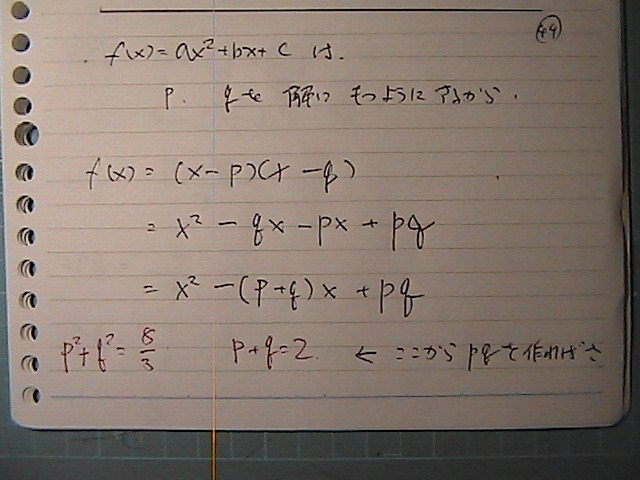 49
f(x) = ax² + bx + c は.
p. qを 解に もつように するから.
f(x) = (x - p)(x - q)
= x² - qx - px + pq
= x² - (p+q)x + pq
p² + q² = 8/3 p + q = 2. ← ここから pqを作れば